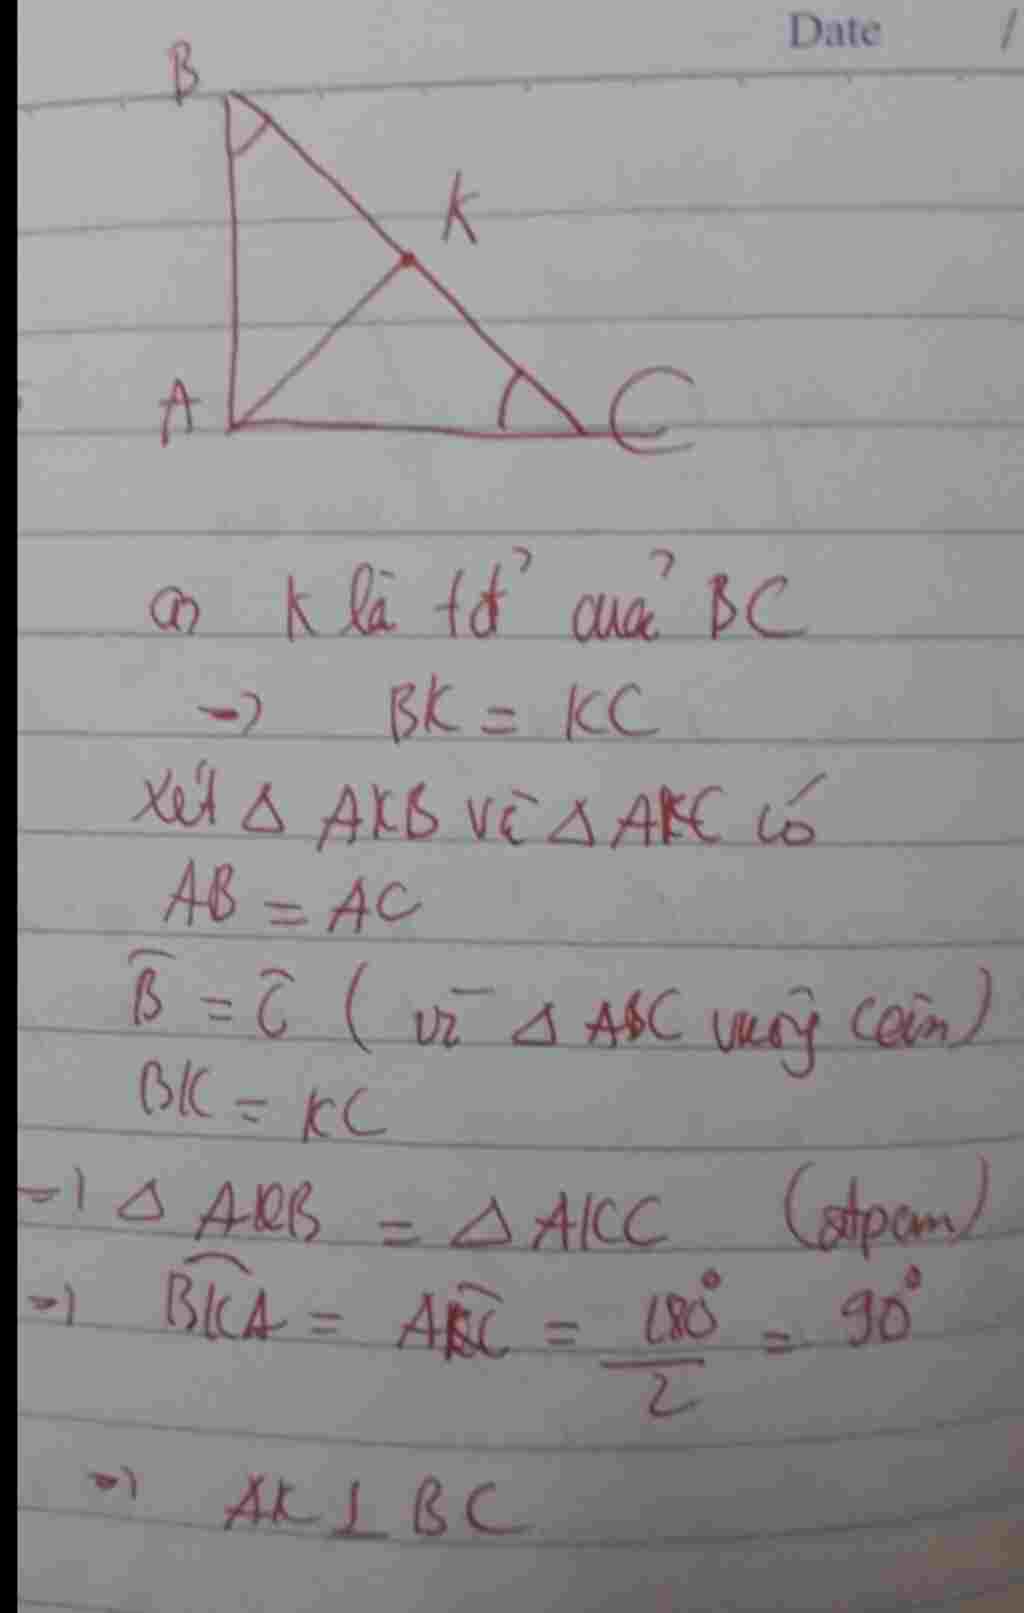 Date /
B
K
A C
a) K là tđ² của BC
→ BK = KC
Xét Δ AKB và Δ AKC có
AB = AC
B̂ = Ĉ ( vì Δ ABC vuông cân)
BK = KC
→ Δ AKB = Δ AKC (đtpcm)
→ B͡KA = A͡KC = 180°/2 = 90°
→ AK ⊥ BC